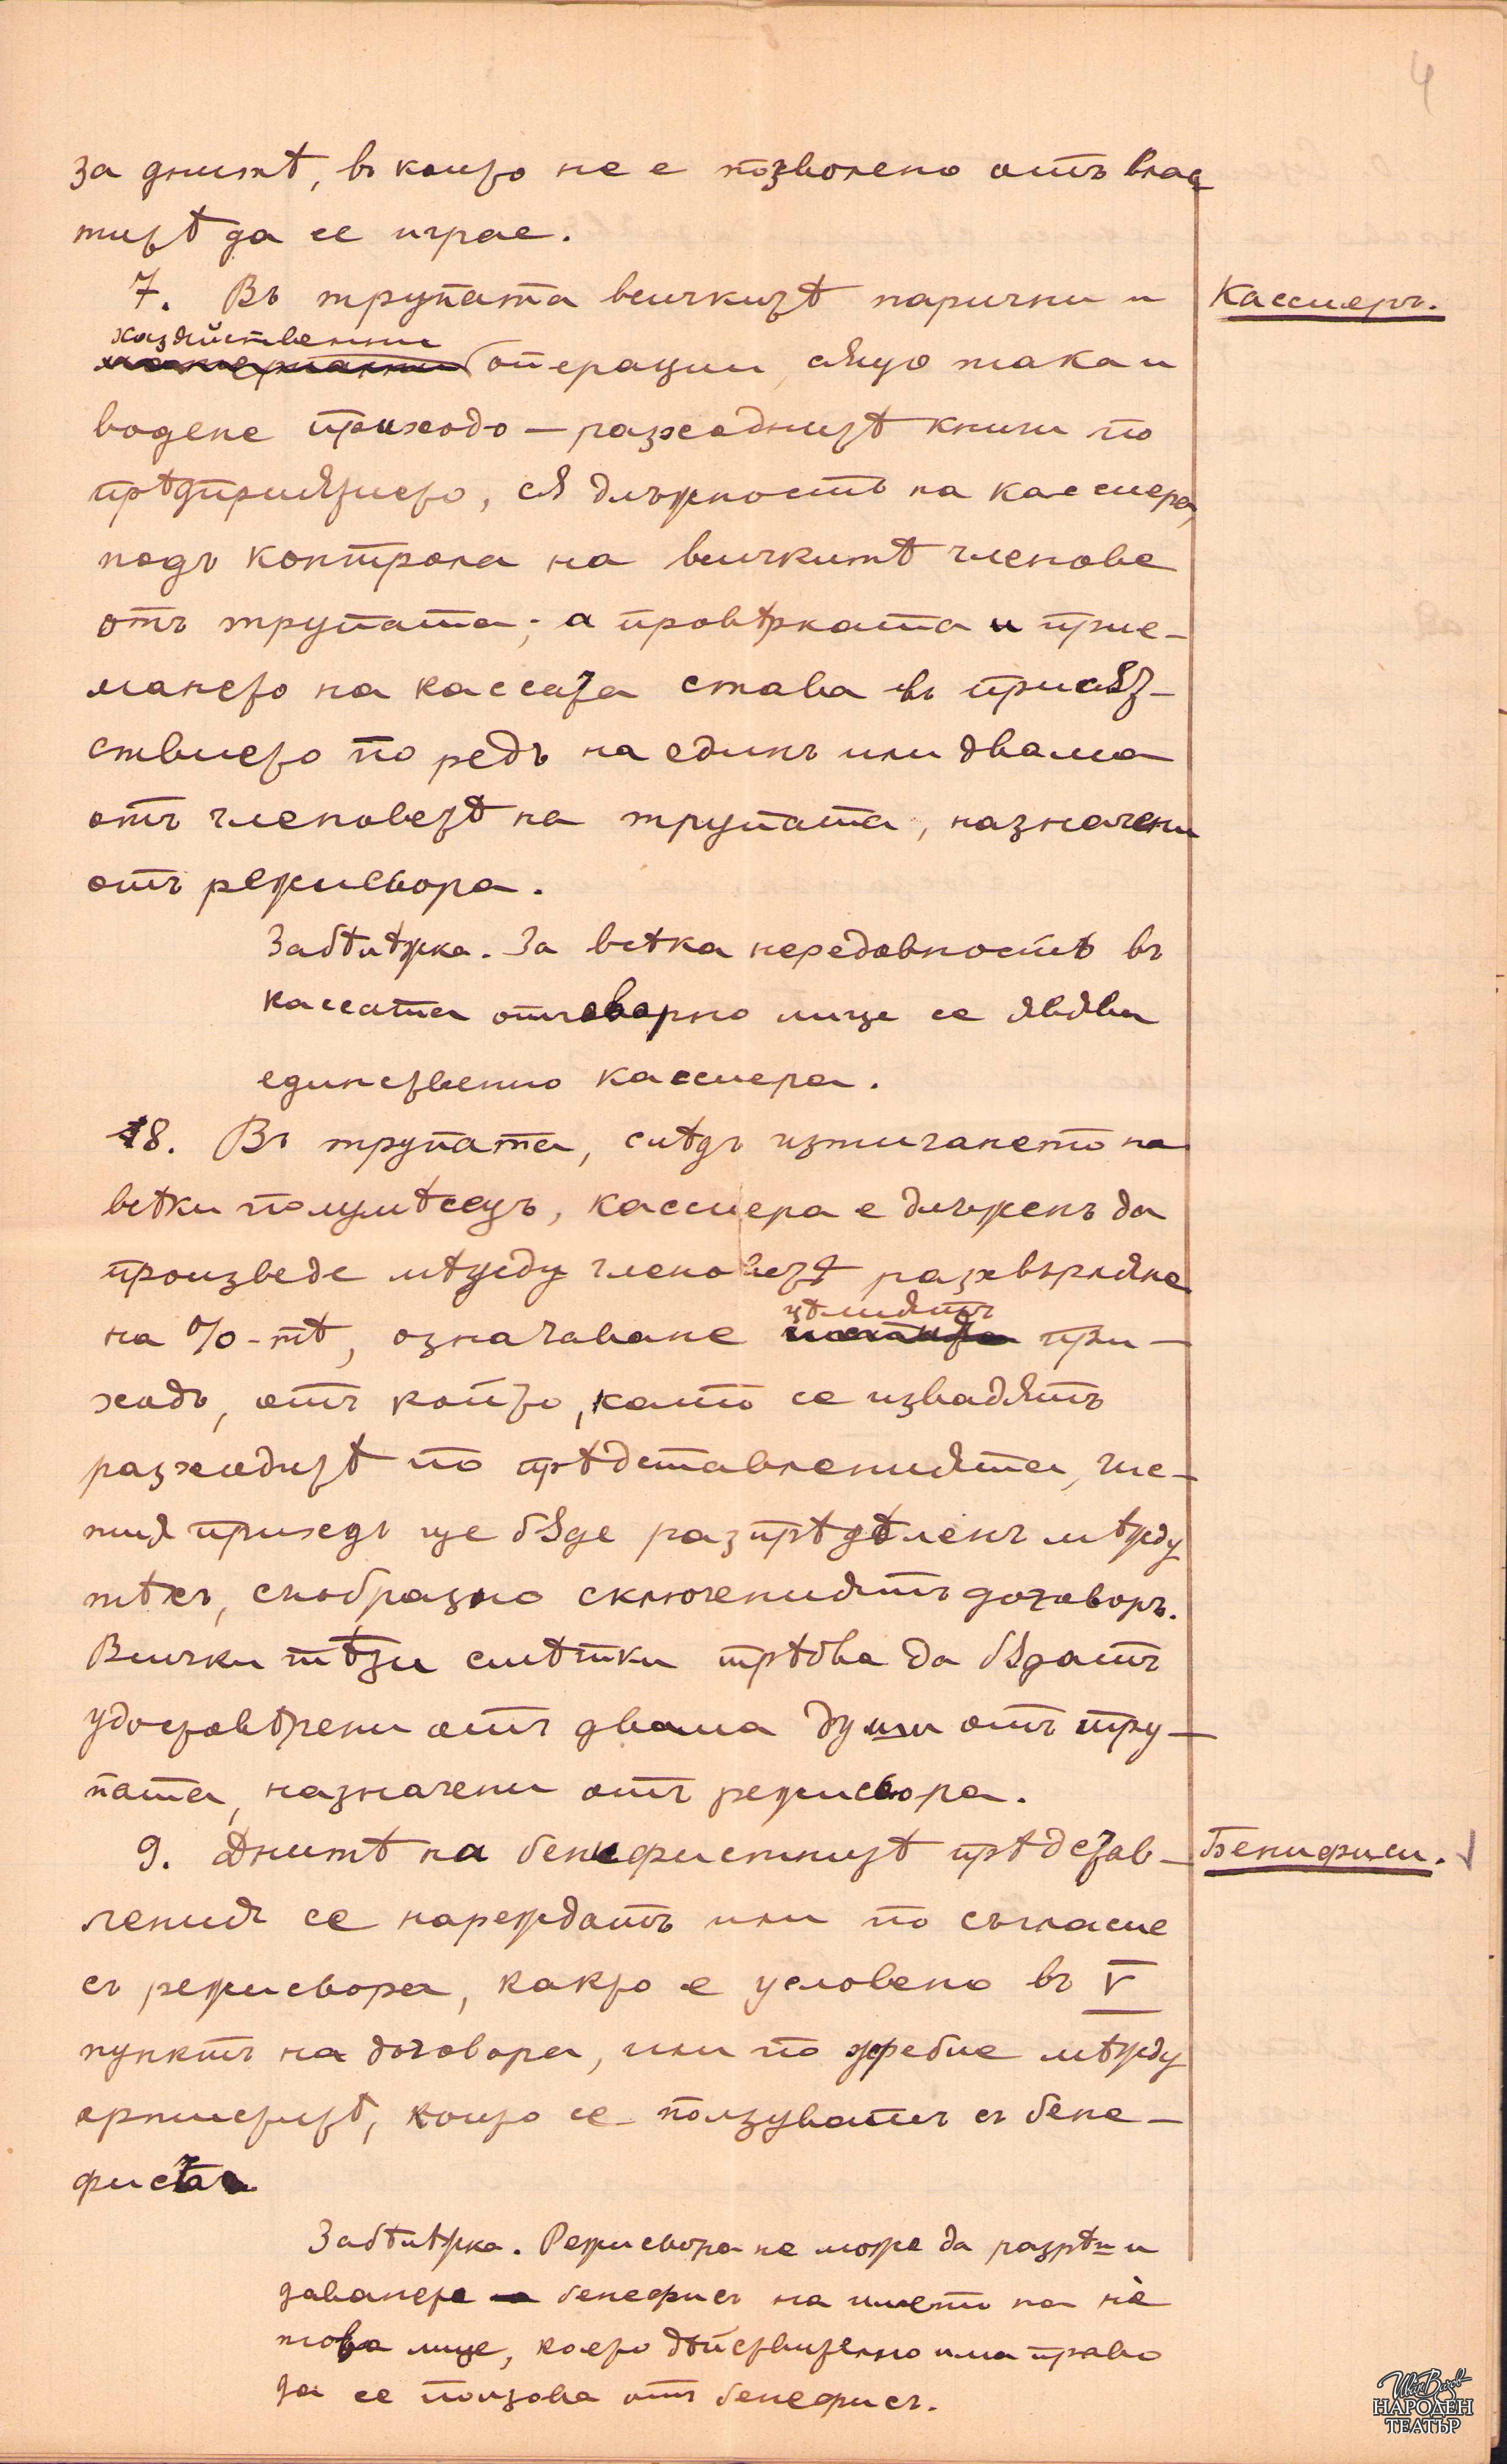 4
за днитѣ, въ които не е позволено отъ влас
титѣ да се играе.
7. Въ трупата всичкитѣ парични и
Кассиеръ.
хазяйственни
операции, също така и
водене приходо — разходнитѣ книги по
прѣдприятието, сѫ длъжность на кассиера,
подъ контрола на всичкитѣ членове
отъ трупата; а провѣрката и прие-
мането на кассата става въ присѫт-
ствието по редъ на единъ или двама
отъ членоветѣ на трупата, назначени
отъ режисьора.
Забѣлѣжка. За всѣка нередовность въ
кассата отговорно лице се явява
единственно кассиера.
8. Въ трупата, слѣдъ изтичането на
всѣки полумѣсецъ, кассиера е длъженъ да
произведе мѣжду членоветѣ разхвърляне
на %-тѣ, означаване цѣлиятъ при-
ходъ, отъ който, като се извадятъ
разходитѣ по прѣдставленията, чис-
тия приходъ ще бѫде разпрѣдѣленъ мѣжду
тѣхъ, съобразно сключениятъ договоръ.
Всички тѣзи смѣтки трѣбва да бѫдатъ
удостовѣрени отъ двама души отъ тру-
пата, назначени отъ режисьора.
9. Днитѣ на бенефистнитѣ прѣдстав-
Бенифиси.
ления се нареждатъ или по съгласие
съ режисьора, както е условено въ V
пунктъ на договора, или по жребие мѣжду
артиститѣ, които се ползуватъ съ бене-
фиса.
Забѣлѣжка. Режисьора не може да разрѣши
даването бенефисъ на името на не
това лице, което дѣйствително има право
да се ползова отъ бенефисъ.
Иван Вазов
НАРОДЕН
ТЕАТЪР